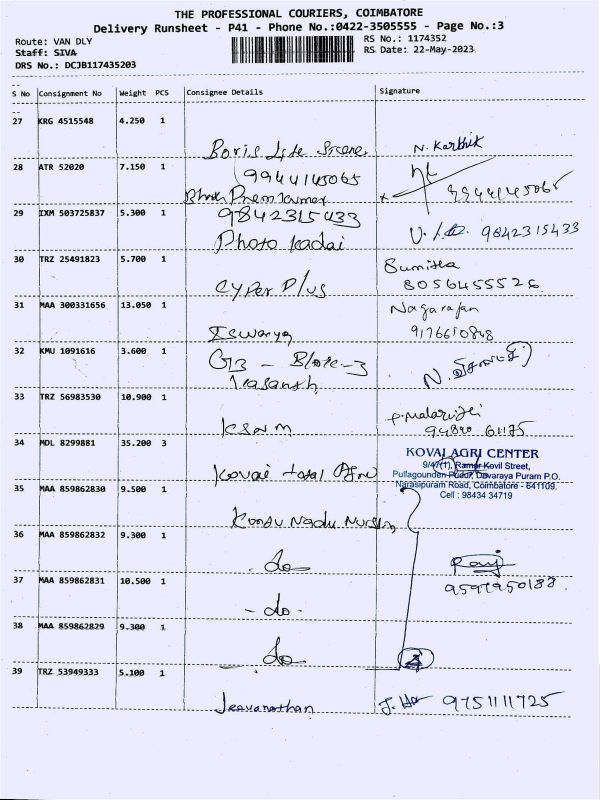 THE PROFESSIONAL COURIERS, COIMBATORE
Delivery Runsheet - P41 - Phone No.:0422-3505555 - Page No.:3
Route: VAN DLY
RS No.: 1174352
Staff: SIVA
RS Date: 22-May-2023
DRS No.: DCJB117435203
S No Consignment No Weight PCS Consignee Details Signature
27 KRG 4515548 4.250 1
Boris N. Karthik
28 ATR 52020 7.150 1
9944145065
9944145065
29 IXM 503725837 5.300 1
9842315433
9842315433
Photo Kadai
30 TRZ 25491823 5.700 1
Sumitha
Cyper Plus 8056455526
31 MAA 300331656 13.050 1
Nagarajan
Iswarya 9176610848
32 KMU 1091616 3.600 1
G3 - Block-3
Vasanth
33 TRZ 56983530 10.900 1
KSNM
34 MDL 8299881 35.200 3
Kovai total Agri
KOVAI AGRI CENTER
9/47(1), Ramar Kovil Street,
Pullagounden Pudur, Devaraya Puram P.O.
Narasipuram Road, Coimbatore - 641109.
Cell : 98434 34719
35 MAA 859862830 9.500 1
Kongu Nadu Nursery
36 MAA 859862832 9.300 1
- do - Ravi
37 MAA 859862831 10.500 1
9597950188
- do -
38 MAA 859862829 9.300 1
- do -
39 TRZ 53949333 5.100 1
Jeevananthan 9751111725